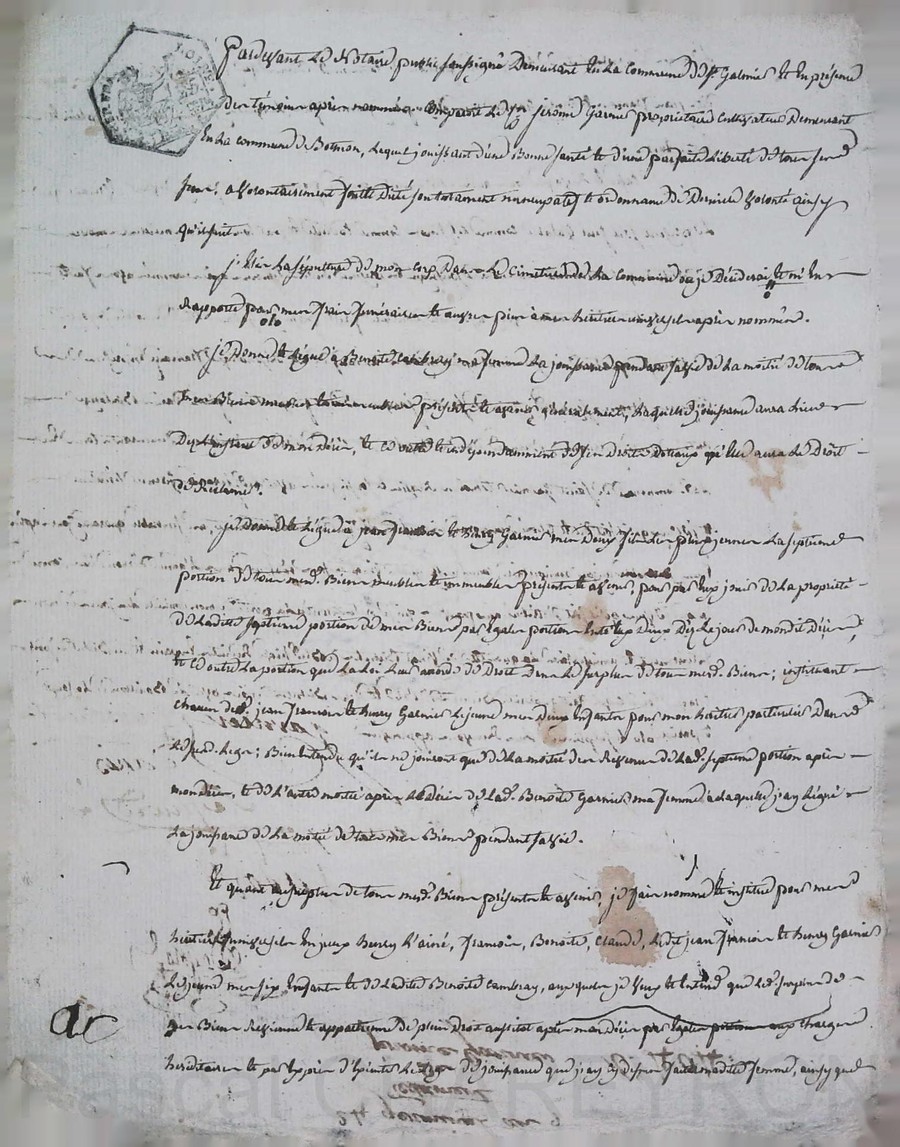 Pardevant Le Notaire public soussigné Demeurant en La Commune de St Galmier et en présence
des témoins après nommés Comparoit Le sr jerôme Garnier propriétaire Cultivateur Demeurant
En La commune de , Lequel jouissant d'une Bonne santé et d'une parfaite Liberté de tous ses
sens, a Volontairement fait et Dicté son testament nuncupatif et ordonnance de Derniere Volonté ainsy
qu'il suit
j'Elis La sépulture de mon corps Dans Le Cimetiere de La Commune où je Déciderai et m'en
Rapporte pour mes frais funéraires et œuvres pies à mes héritiers universels après nommés.
je Donne et Légue à Benoite Cambray ma femme La jouissance pendant sa vie de La moitié de tous
mes Biens meubles et immeubles présents et avenir généralement, Laquelle jouissance aura Lieu
Dez L'instant de mon Décès, et ce outre et indépendamment de ses Droits Dotaux qu'elle aura Le Droit
de Reclamer.
je Donne et Légue à jean francois et henry Garnier mes Deux fils Les plus jeunes La septieme
portion de tous mesd. Biens meubles et immeubles présents et avenir, pour par Eux jouir de La propriété
de Ladite septieme portion de mes Biens par Egales portions Entre Eux Deux Dez Le jour de mondit Décès,
et ce outre La portion que La Loi Leur accorde de Droit Dans Le surplus de tous mesd. Biens ; instituant
chacun desd. jean francois et henry Garnier Le jeune mes Deux Enfants pour mes héritiers particuliers Dans
Led. Legs ; Bien Entendu qu'ils ne jouiront que de La moitié des Revenus de Lad. septieme portion après
mon décès, et de L'autre moitié après Le Décès de Lad. Benoite Garnier ma femme à Laquelle j'ay Légué
La jouissance de La moitié de tous mes Biens pendant sa vie.
Et quant au surplus de tous mesd. Biens présents et avenir, je fais nomme et institue pour mes
héritiers universels Enjeux henry L'ainé, francois, Benoite, Claude, Ledit jean francois et henry Garnier
Le jeune mes six Enfants et de Ladite Benoite Cambray, auxquels je Veux et Entend que Led. surplus de
mes Biens Reviennent et appartienne de plein Droit aussitot après mon décès par Egales portions aux charges
héréditaires et par Exprès d' Le Legs de jouissance que j'ay cy Dessus fait à madite femme, ainsy que